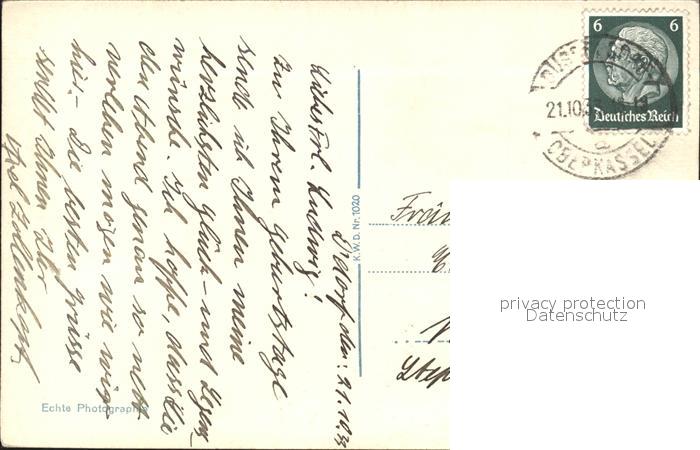 D'dorf den: 21.10.33
Liebes Frl. Ludwig!
Zu Ihrem Geburtstage
sende ich Ihnen meine
herzlichsten Glück- und Segens-
wünsche. Ich hoffe, dass Sie
den Abend genau so nett
verleben mögen wie wir
hier. - Die besten Grüsse
sendet Ihnen Ihr
Echte Photographie
K.W.D. Nr. 1020
6 6
Deutsches Reich
DÜSSELDORF
21.10.33
OBERKASSEL
a
Fräul
privacy protection
Datenschutz
Step